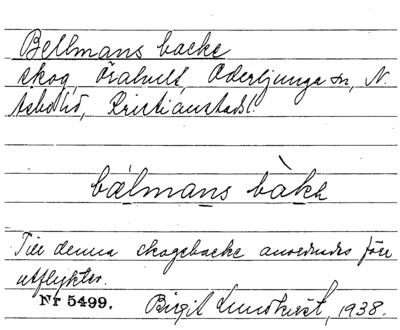 Bellmans backe
skog, Örahult, Oderljunga sn, N.
Åsbo hd, Kristianstads l.
bælmans bàkə
Till denna skogsbacke anordnades förr
utflykter.
Nr 5499. Birgit Lundkvist, 1938.